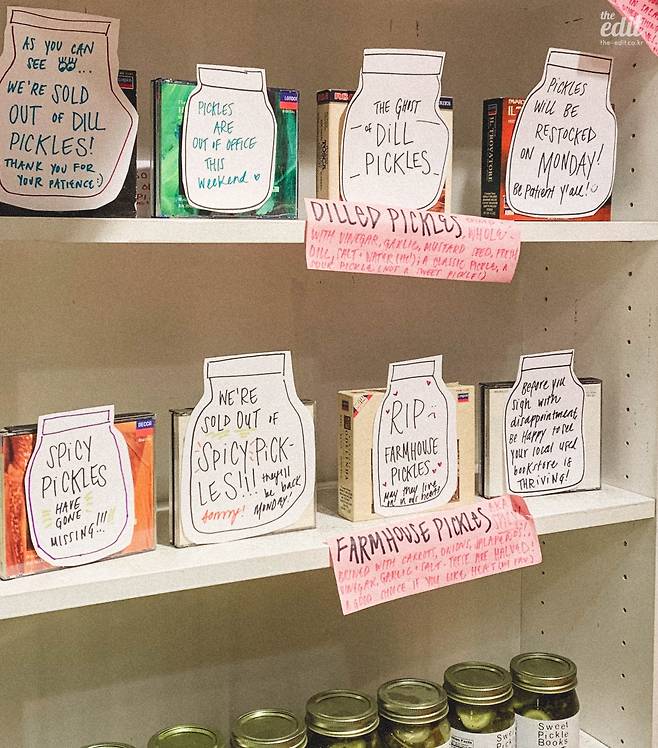 the
edit
the-edit.co.kr
AS YOU CAN
SEE
WE'RE SOLD
OUT OF DILL
PICKLES!
THANK YOU FOR
YOUR PATIENCE :)
PICKLES
ARE
OUT OF OFFICE
THIS
Weekend
LONDON
THE GHOST
OF DILL
PICKLES
IL TROVATORE
PICKLES
WILL BE
RESTOCKED
ON MONDAY!
Be PATIENT Y'all!
DILLED PICKLES WHOLE
WITH VINEGAR, GARLIC, MUSTARD SEED, FRESH
DILL, SALT + WATER A CLASSIC PICKLE, A
SOUR PICKLE (NOT A SWEET PICKLE!)
SPICY
PICKLES
HAVE
GONE
MISSING!!!
DECCA
WE'RE
SOLD OUT OF
SPICY PICK-
LES!!! they'll
be back
Sorry! MONDAY!
RIP
FARMHOUSE
PICKLES
MAY they live
on in our hearts
Before you
sigh with
disappointment
Be Happy to see
your local used
bookstore is
THRIVING!
FARMHOUSE PICKLES
BRINED WITH CARROTS, ONIONS, JALAPEÑOS,
VINEGAR, GARLIC + SALT. THESE ARE HALVED!
A GOOD CHOICE IF YOU LIKE HEAT (MY FAV)
Sweet
Pickle
Sweet
Pickle
Books
Sweet
Pickle
Sweet
Pickle
Books